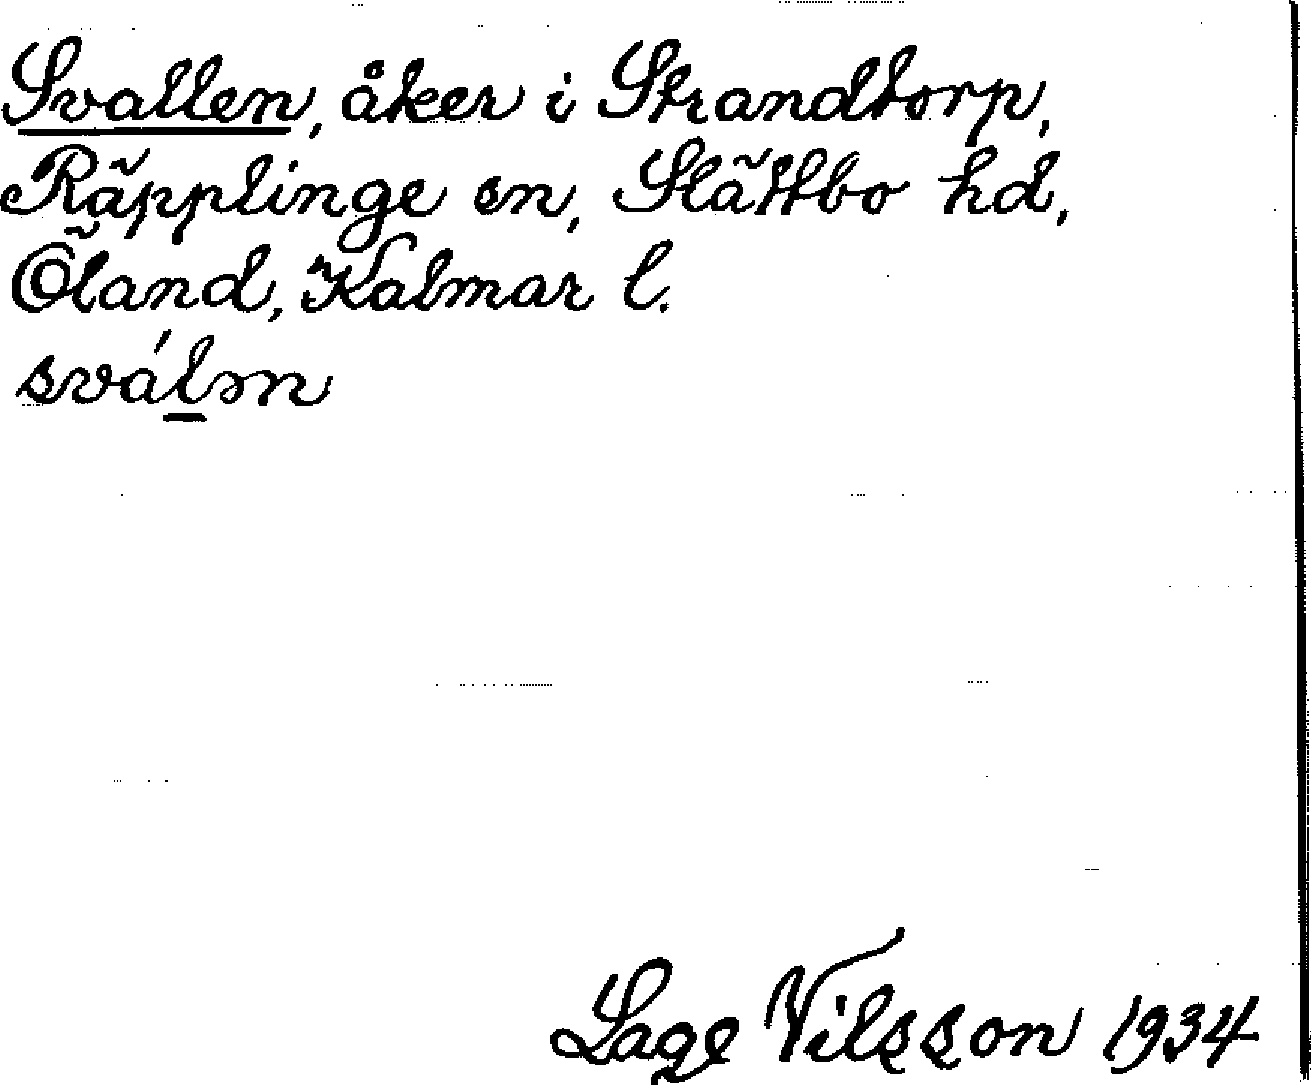 Svallen, åker i Strandtorp,
Räpplinge sn, Slättbo hd,
Öland, Kalmar l.
sválən
Lage Nilsson 1934